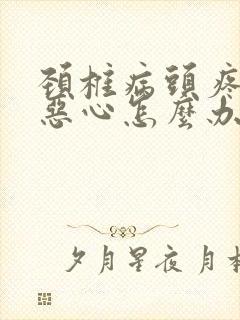 頚椎病頭疼
惡心怎麼办
夕月星夜 月